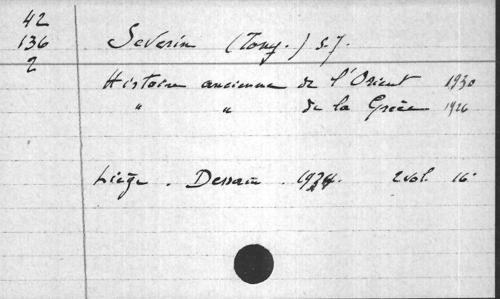 42
136
2
Severin (Tony.) s.j.
Histoire ancienne de l'Orient 1930
" " de la Grèce 1926
Liège. Dessain. 2 vol. 16°